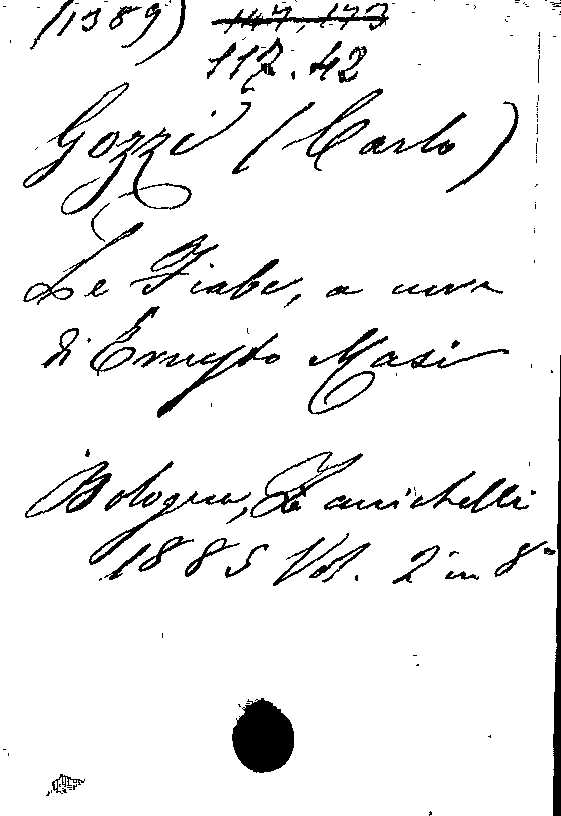 (1389) 147.173
117.42
Gozzi (Carlo)
Le Fiabe, a cura
di Ernesto Masi
Bologna, Zanichelli
1885 Vol. 2 in 8°